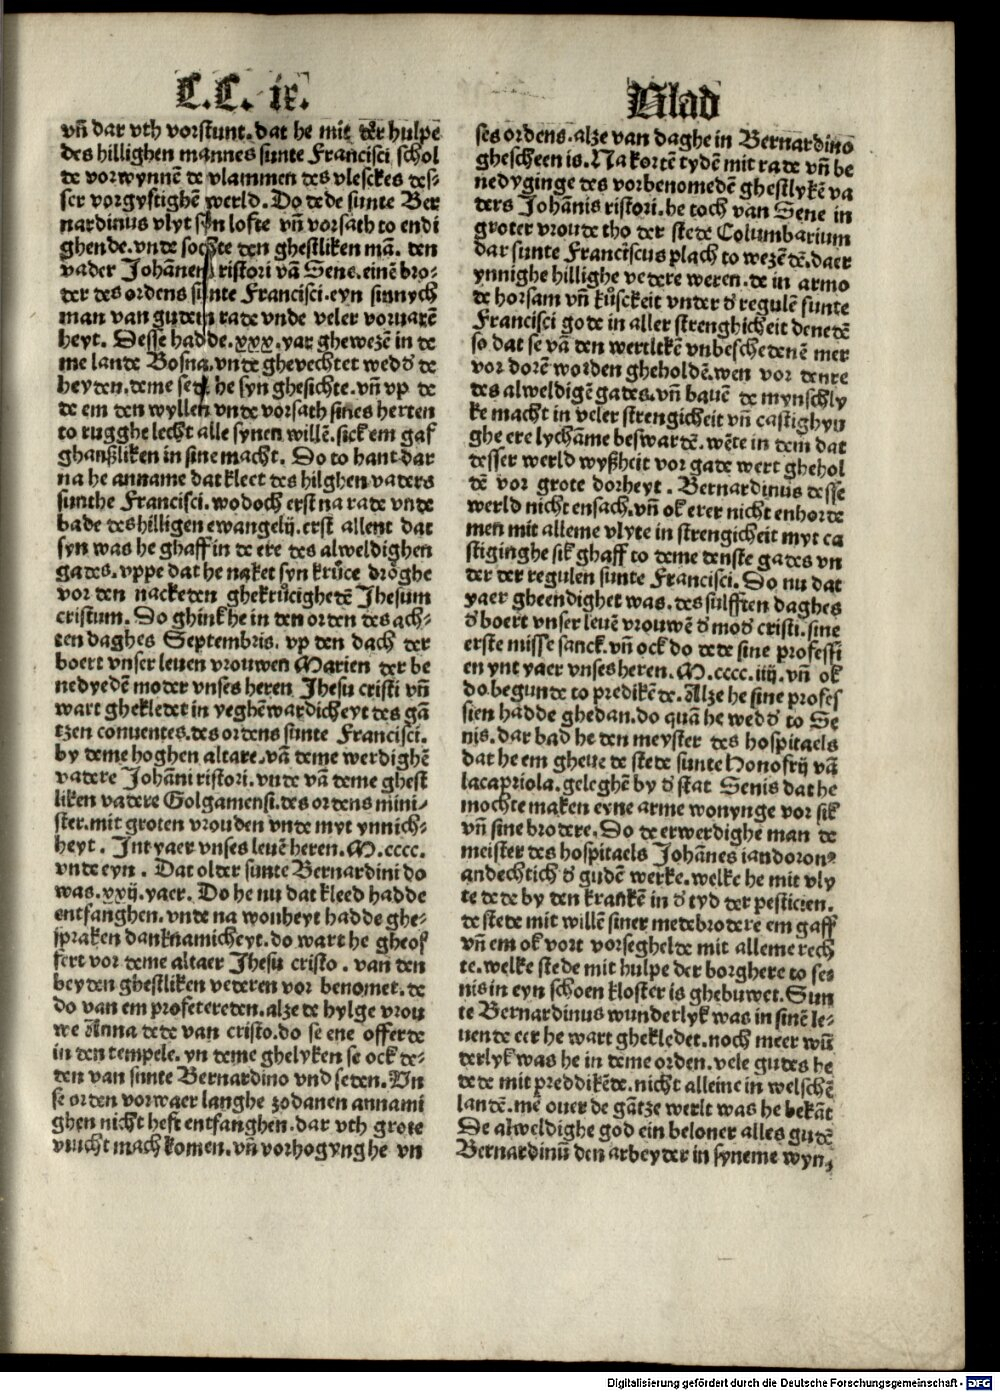 C.C. ix. Blad
vn̄ dar vth vorstunt. dat he mit der hulpe
des hillighen mannes sunte Francisci schol
de vorwynnē de vlammen des vlesckes des⸗
ser vorgystighē werld. Do dede sunte Ber
nardinus vlyt syn lofte vn̄ vorsath to endi
ghende. vnde sochte den ghestliken mā. den
vader Johānem ristori vā Sene. einē bro⸗
der des ordens sunte Francisci. eyn sinnych
man van gudem rade vnde veler vorvarē
heyt. Desse hadde. xxx. yar ghewezē in de
me lande Bosna. vnde ghevechtet wedd̕ de
heyden. deme sede he syn ghesichte. vn̄ vp de
de em den wyllen vnde vorsath sines herten
to rugghe lecht alle synen willē. sick em gaf
ghanßliken in sine macht. Do to hant dar
na he anname dat kleet des hilghen vaders
sunthe Francisci. wo doch erst na rade vnde
bade des hilligen ewangelij. erst allent dat
syn was he ghaff in de ere des alweldighen
gades. vppe dat he naket syn krůce drőghe
vor den nacketen ghekrůcighetē Jhesum
cristum. Do ghink he in den orden des ach⸗
ten daghes Septembris. vp den dach der
boert vnser leuen vrouwen Marien der be
nedyedē moder vnses heren Jhesu cristi vn̄
wart ghekledet in yeghēwardicheyt des gā
tzen conuentes. des ordens sunte Francisci.
by deme hoghen altare. vā deme werdighē
vadere Johāni ristori. vnde vā deme ghest
liken vadere Golgamensi. des ordens mini⸗
ster. mit groten vrouden vnde myt ynnich⸗
heyt. Int yaer vnses leuē heren. M. cccc.
vnde eyn. Dat older sunte Bernardini do
was. xxij. yaer. Do he nu dat kleed hadde
entfanghen. vnde na wonheyt hadde ghe⸗
spraken danknamicheyt. do wart he gheof
fert vor deme altaer Jhesu cristo. van den
beyden ghestliken vederen vor benomet. de
do van em profetereden. alze de hylge vrou
we Anna dede van cristo. do se ene offerde
in den tempele. yn deme ghelyken se ock de⸗
den van sunte Bernardino vnd seden. Vn
se orden vorwaer langhe zodanen annami
ghen nicht heft entfanghen. dar vth grote
vrucht mach komen. vn̄ vorhogynghe vn
ses ordens. alze van daghe in Bernardino
ghescheen is. Na kortē tydē mit rade vn̄ be
nedyginge des vorbenomedē ghestlykē va
ders Johānis ristori. he toch van Sene in
groter vroude tho der stede Columbarium
dar sunte Franciscus plach to wezēde. daer
ynnighe hillighe vedere weren. de in armo
de horsam vn̄ kůsckeit vnder d̕ regulē sunte
Francisci gode in aller strenghicheit denedē
so dat se vā den wertlikē vnbeschedenē mer
vor dorē worden gheholdē. wen vor denre
des alweldigē gades. vn̄ bauē de mynschly
ke macht in veler strengicheit vn̄ castighyn
ghe ere lychāme beswardē. wēte in dem dat
desser werld wyßheit vor gade wert ghehol
dē vor grote dorheyt. Bernardinus desse
werld nicht ensach. vn̄ ok erer nicht enhorde
men mit alleme vlyte in strengicheit myt ca
stiginghe sik ghaff to deme denste gades vn
der der regulen sunte Francisci. Do nu dat
yaer gheendighet was. des sulfften daghes
d̕ boert vnser leuē vrouwē d̕ mod̕ cristi. sine
erste misse sanck. vn̄ ock do dede sine professi
en ynt yaer vnses heren. M. cccc. iiij. vn̄ ok
do begunde to predikēde. Alze he sine profes
sien hadde ghedan. do quā he wedd̕ to Se
nis. dar bad he den meyster des hospitaels
dat he em gheue de stede sunte Honofrij vā
lacapriola. geleghē by d̕ stat Senis dat he
mochte maken eyne arme wonynge vor sik
vn̄ sine brodere. Do de erwerdighe man de
meister des hospitaels Johānes iandoron⸗
andechtich d̕ gudē werke. welke he mit vly
te dede by den krankē in d̕ tyd der pestilcien.
de stede mit willē siner medebrodere em gaff
vn̄ em ok vort vorseghelde mit alleme rech
te. welke stede mit hulpe der borghere to se⸗
nis in eyn schoen kloster is ghebuwet. Sun
te Bernardinus wunderlyk was in sinē le⸗
uende eer he wart ghekledet. noch meer wū
derlyk was he in deme orden. vele gudes he
dede mit preddikēde. nicht alleine in welschē
landē. mē ouer de gātze werlt was he bekāt
De alweldighe god ein beloner alles gudē
Bernardinū den arbeyder in syneme wyn,
Digitalisierung gefördert durch die Deutsche Forschungsgemeinschaft - DFG